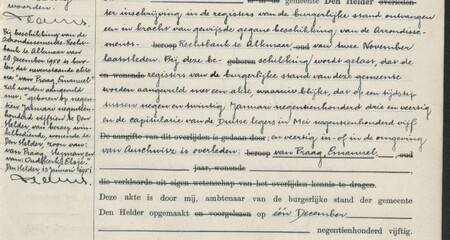 woorden.
Bij beschikking van de
Arrondissements-Recht-
bank te Alkmaar van
28 December 1950 is bevo-
len dat nevenstaande akte
van "van Praag Emanuel"
zal worden aangevuld
met: "geboren op negentien
Januari negentien-
honderd vijftien te Den
Helder, van beroep win-
kelbediende, wonende te
Den Helder, zoon van:
van Praag, Herman en
van: Oudkerk, Elsje."
Den Helder, Januari 1951
gemeente Den Helder overleden
ter inschrijving in de registers van de burgerlijke stand ontvangen
een in kracht van gewijsde gegane beschikking van de Arrondisse-
ments- beroep Rechtbank te Alkmaar, oud van twee November
laatstleden. Bij deze be- geboren schikking wordt gelast, dat de
en wonende registers van de burgerlijke stand van deze gemeente
worden aangevuld met een akte, waaruit blijkt, dat op een tijdstip
tussen negen en twintig Januari negentienhonderd drie en veertig
en de capitulatie van de Duitse legers in Mei negentienhonderd vijf
De aangifte van dit overlijden is gedaan door: en veertig in of in de omgeving
van Auschwitz is overleden: beroep van Praag, Emanuel, oud
jaar, wonende
die verklaarde uit eigen wetenschap van het overlijden kennis te dragen.
Deze akte is door mij, ambtenaar van de burgerlijke stand der gemeente
Den Helder opgemaakt en voorgelezen op één December
negentienhonderd vijftig.